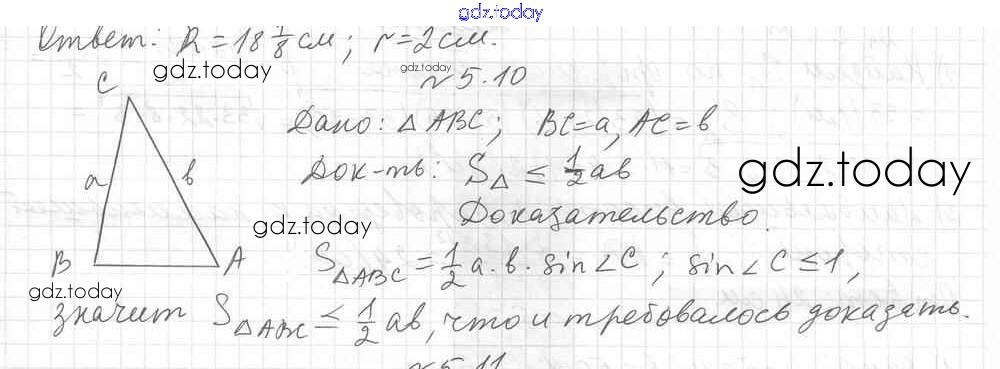 gdz.today
Ответ: R = 18 1/8 см; r = 2 см.
gdz.today
gdz.today
№ 5.10
C
Дано: △ ABC; BC = a, AC = в
a
в
Док-ть: S△ ≤ 1/2 aв
gdz.today
Доказательство.
gdz.today
B
A
S△ABC = 1/2 a · в · sin∠C ; sin∠C ≤ 1,
gdz.today
значит S△ABC ≤ 1/2 aв, что и требовалось доказать.
№ 5.11